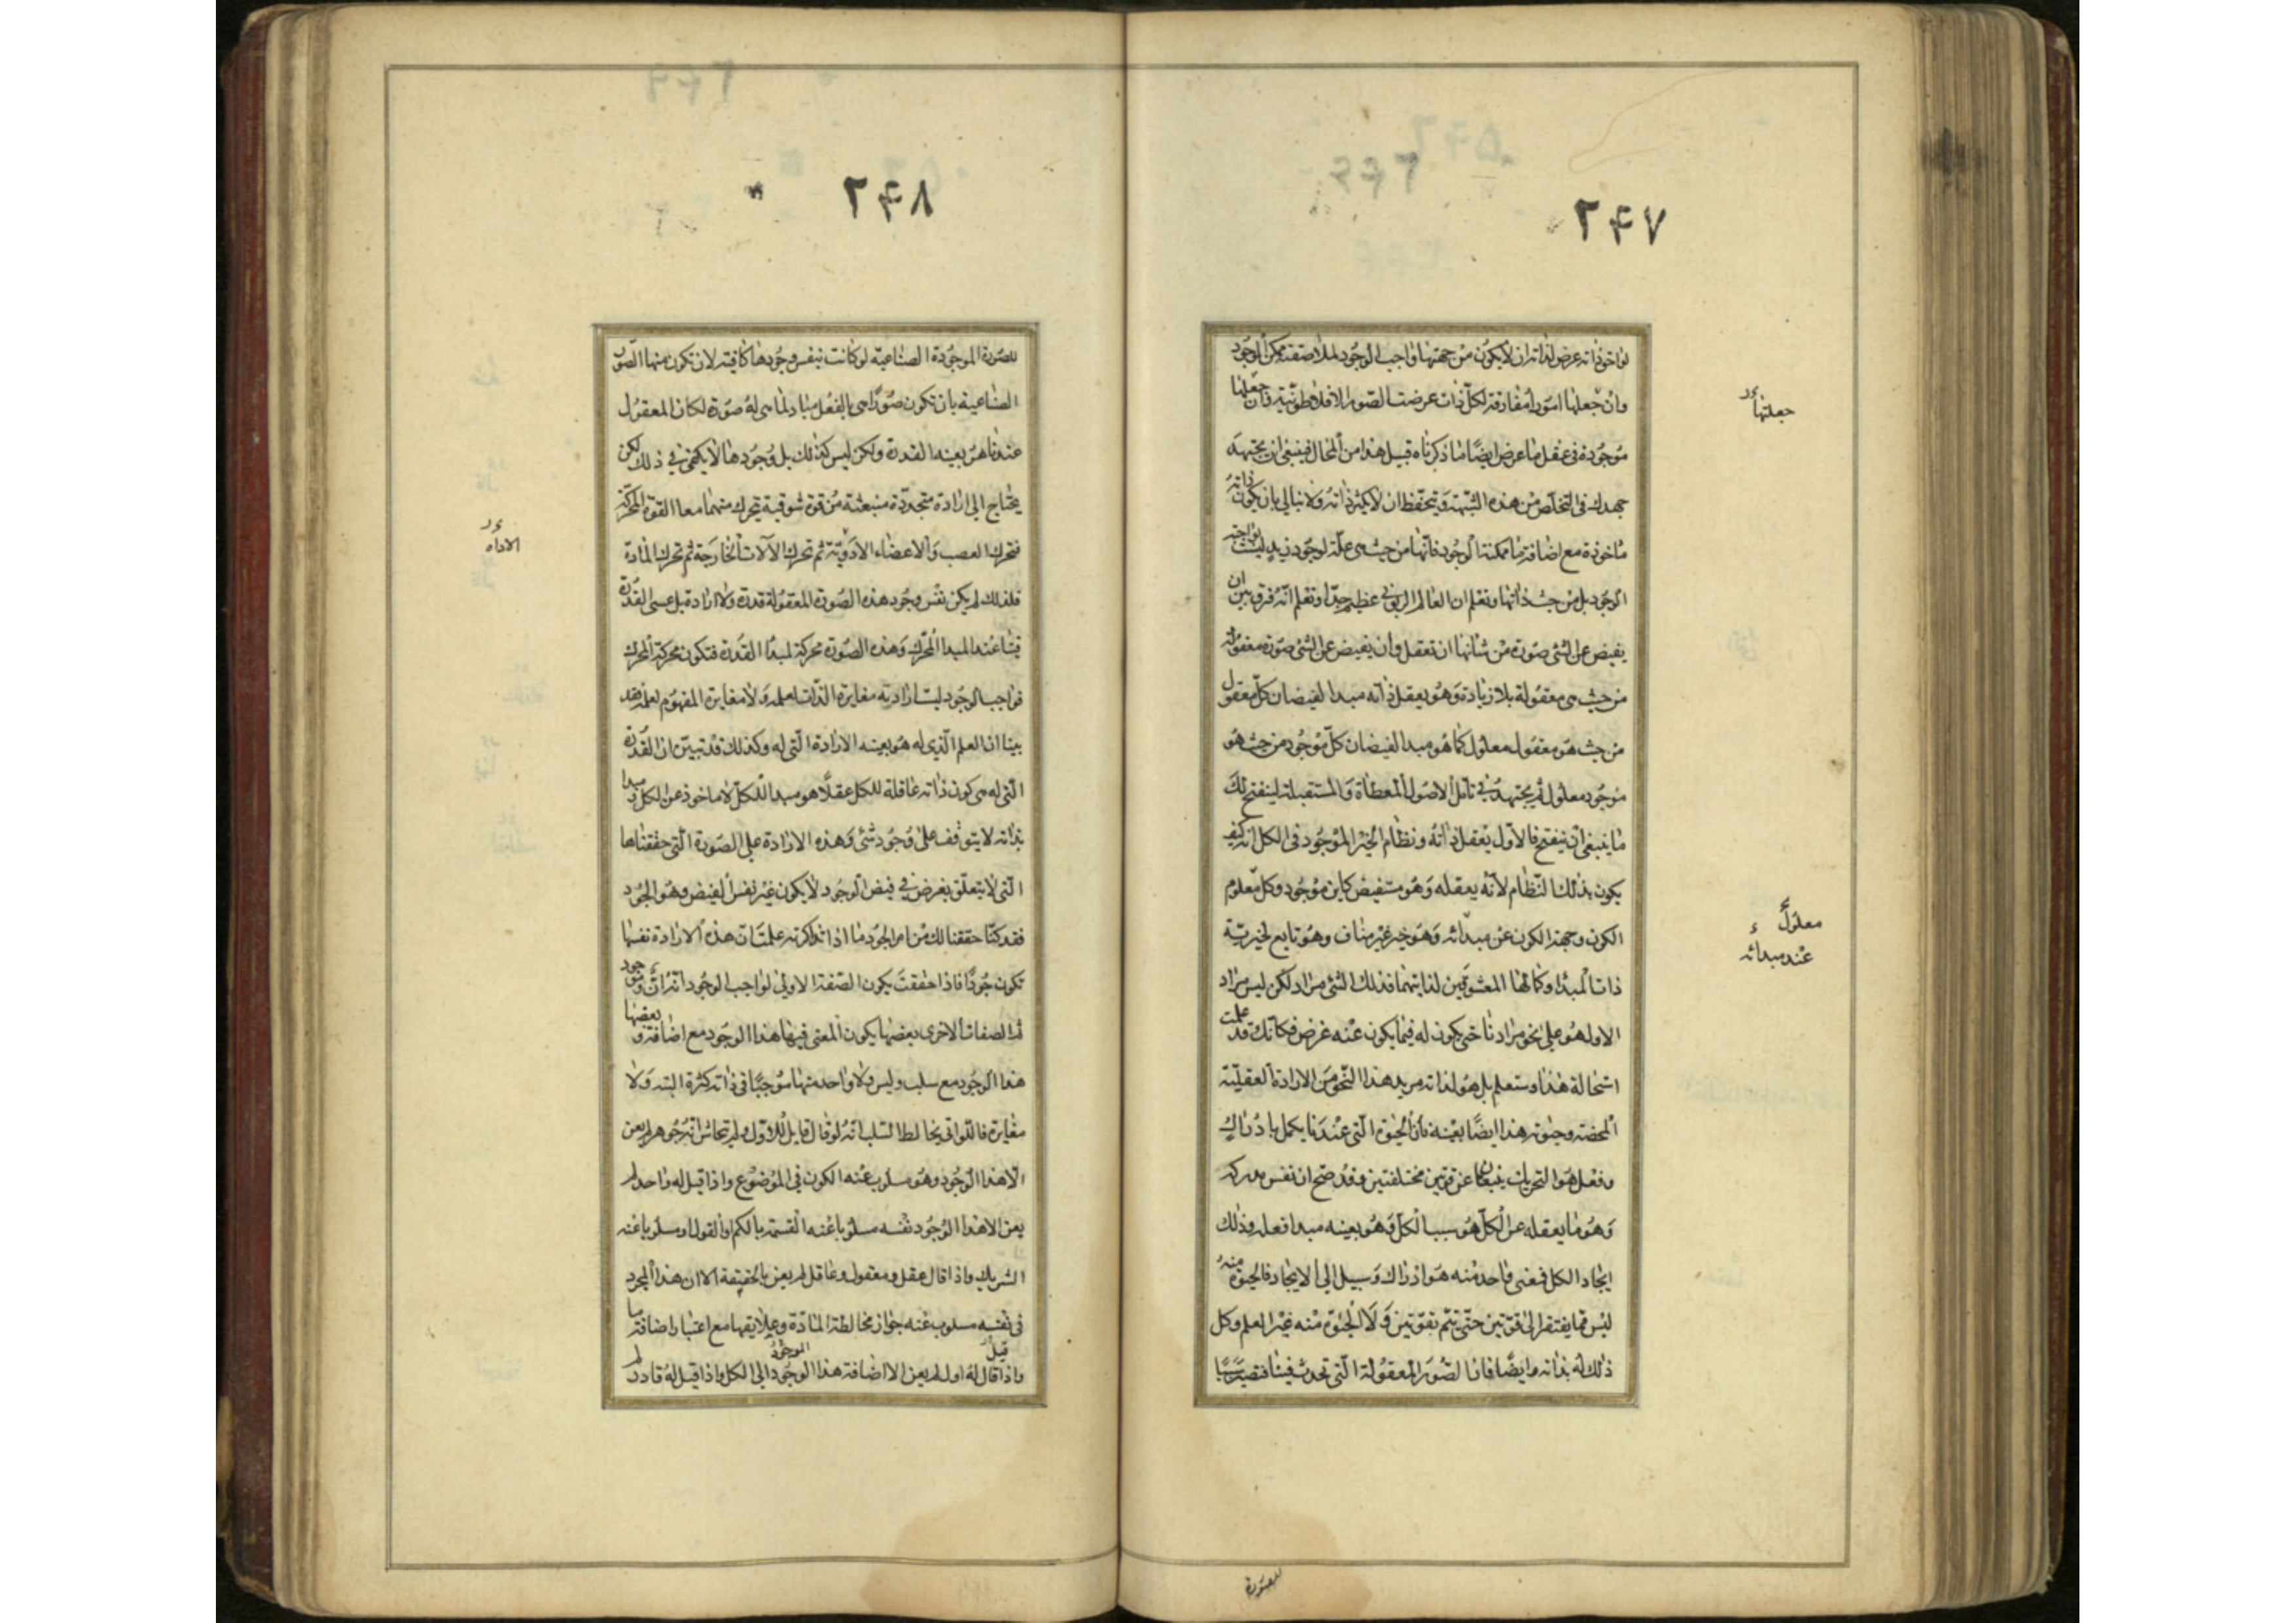 ٢٤٧
لواحق ذاته عرض لذاته ان لا يكون من جهتها واجب الوجود لملاصقته ممكن الوجود
وان جعلتها امورا مفارقة لكل ذات عرضت الصور الافلاطونية وان جعلتها
جعلتها
موجودة فى عقل ما عرض ايضا ما ذكرناه قبيل هذا من المحال فينبغى ان تجتهد
جهدك فى التخلص من هذه الشبهة وتتحفظ ان لا يكثر ذاته ولا تبالى بان يكون ذاته
ماخوذة مع اضافة ما ممكنة الوجود فانها من حيث هى علة لوجود زيد ليست بواجبة
الوجود بل من حيث ذاتها وتعلم ان العالم الربوبى عظيم جدا وتعلم انه فرق بين ان
يفيض عن الشئ صورة من شانها ان تعقل وان يفيض عن الشئ صورة معقولة
من حيث هى معقولة بلا زيادة وهو يعقل ذاته مبدا لفيضان كل معقول
من حيث هو معقول معلول كما هو مبدا لفيضان كل موجود من حيث هو
موجود معلول ثم تجتهد فى تامل الاصول المعطاة والمستقبلة لينفتح لك
ما ينبغى ان ينفتح فالاول يعقل ذاته ونظام الخير الموجود فى الكل انه كيف
يكون بذلك النظام لانه يعقله وهو مستفيض كاين موجود وكل معلوم
معلول
الكون وجهة الكون عن مبدائه وهو خير غير مناف وهو تابع لخيرية
عند مبدائه
ذات المبدا وكمالها المعشوقين لذاتيهما فذلك الشئ مراد لكن ليس مراد
الاول هو على نحو مرادنا حتى يكون له فيما يكون عنه غرض فكانك قد علمت
استحالة هذا وستعلم بل هو لذاته مريد هذا النحو من الارادة العقلية
المحضة وحيوته هذا ايضا بعينه فان الحيوة التى عندنا يكمل بادراك
وفعل هو التحريك ينبعثان عن قوتين مختلفتين وقد صح ان نفس مدركه
وهو ما يعقله عن الكل هو سبب الكل وهو بعينه مبدا فعله وذلك
ايجاد الكل فمعنى واحد منه هو ادراك وسبيل الى الايجاد فالحيوة منه
ليس مما يفتقر الى قوتين حتى يتم بقوتين ولا الحيوة منه غير العلم وكل
ذلك له بذاته وايضا فان الصور المعقولة التى تحدث فينا فتصير سببا
للصورة
٢٤٨
للصورة الموجودة الصناعية لو كانت بنفس وجودها كافية لان تكون منها الصور
الصناعية بان تكون صورا هى بالفعل مباد لما هى له صورة لكان المعقول
عندنا هو بعينه القدرة ولكن ليس كذلك بل وجودها لا يكفى فى ذلك لكن
يحتاج الى ارادة متجددة منبعثة من قوة شوقية يتحرك منهما معا القوة المحركة
فتحرك العصب والاعضاء الادوية ثم تحرك الآلات الخارجة ثم تحرك المادة
الاداه
فلذلك لم يكن نفس وجود هذه الصورة المعقولة قدرة ولا ارادة بل عسى القدرة
فينا عند المبدا المحرك وهذه الصورة محركة لمبدا القدرة فتكون محركة المحرك
فواجب الوجود ليست ارادته مغايرة الذات لعلمه ولا مغايرة المفهوم لعلمه فقد
بينا ان العلم الذى له هو بعينه الارادة التى له وكذلك قد تبين ان القدرة
التى له هى كون ذاته عاقلة للكل عقلا هو مبدا للكل لا ماخوذ عن الكل ومبدا
بذاته لا يتوقف على وجود شئ وهذه الارادة على الصورة التى حققناها
التى لا يتعلق بغرض فى فيض الوجود لا يكون غير نفس الفيض وهو الجود
فقد كنا حققنا لك من امر الجود ما اذا تذاكرته علمت ان هذه الارادة نفسها
تكون جودا فاذا حققت يكون الصفة الاولى لواجب الوجود انه ان وموجود
ثم الصفات الاخرى بعضها يكون المعنى فيها هذا الوجود مع اضافة وبعضها
هذا الوجود مع سلب وليس ولا واحد منها موجبا فى ذاته كثرة البتة ولا
مغايرة فاللواتى يخالط السلب انه لو قال قايل للاول ولم يتحاش انه جوهر لم يعن
الا هذا الوجود وهو مسلوب عنه الكون فى الموضوع واذا قيل له واحد لم
يعن الا هذا الوجود نفسه مسلوبا عنه القسمة بالكم او القول او مسلوبا عنه
الشريك واذا قال عقل ومعقول وعاقل لم يعن بالحقيقة الا ان هذا المجرد
فى نفسه مسلوب عنه جواز مخالطة المادة وعلايقها مع اعتبار اضافة ما
واذا قال له اول لم يعن الا اضافة هذا الوجود الى الكل واذا قيل له قادر لم
قيل
الموجود